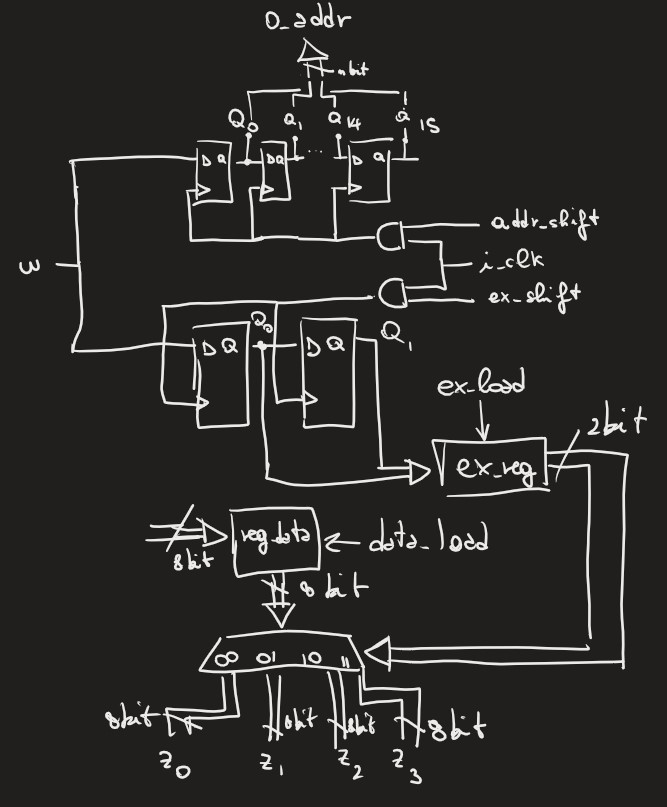 O_addr
nbit
Q0 Q1 Q14 Q15
D Q D Q ... D Q
addr_shift
w i_clk
ex_shift
Q0 Q1
D Q D Q
ex_load
2bit
ex_reg
reg_data data_load
8bit
8 bit
00 01 10 11
8bit 8bit 8bit 8bit
Z0 Z1 Z2 Z3